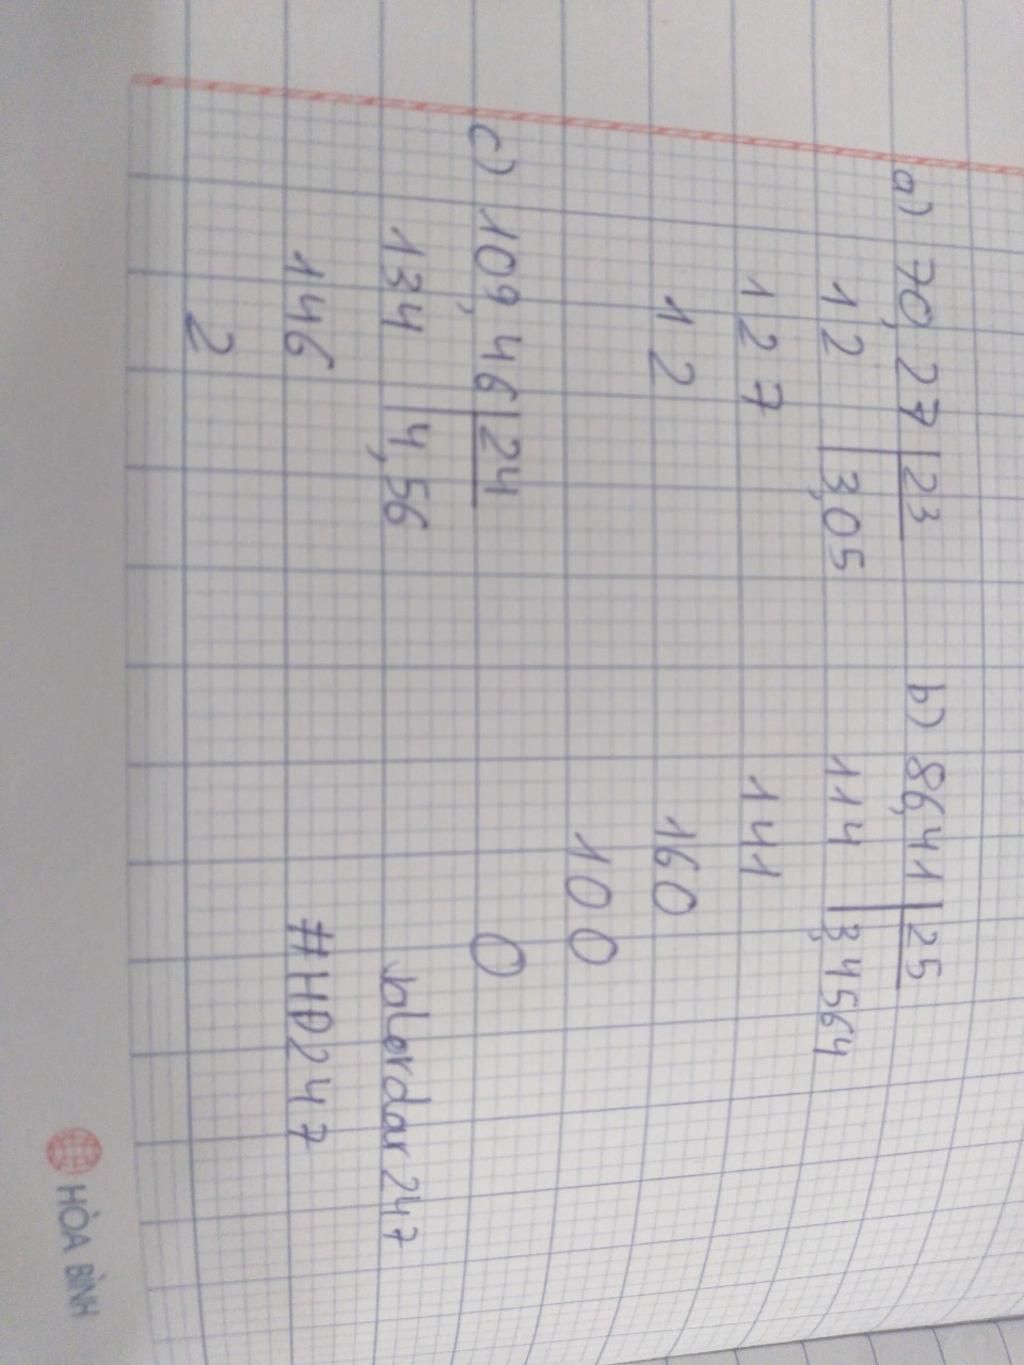 a) 70,27 | 23
12 | 3,05
127
12
b) 86,41 | 25
114 | 3,4564
141
160
100
0
c) 109,46 | 24
134 | 4,56
146
2
#HĐ247
HÒA BÌNH